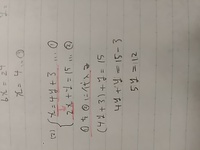 6x = 24
x = 4
x = 4y + 3 … ①
2x + y = 15 … ②
①を②に代入する
(4y + 3) + y = 15
4y + y = 15 - 3
5y = 12